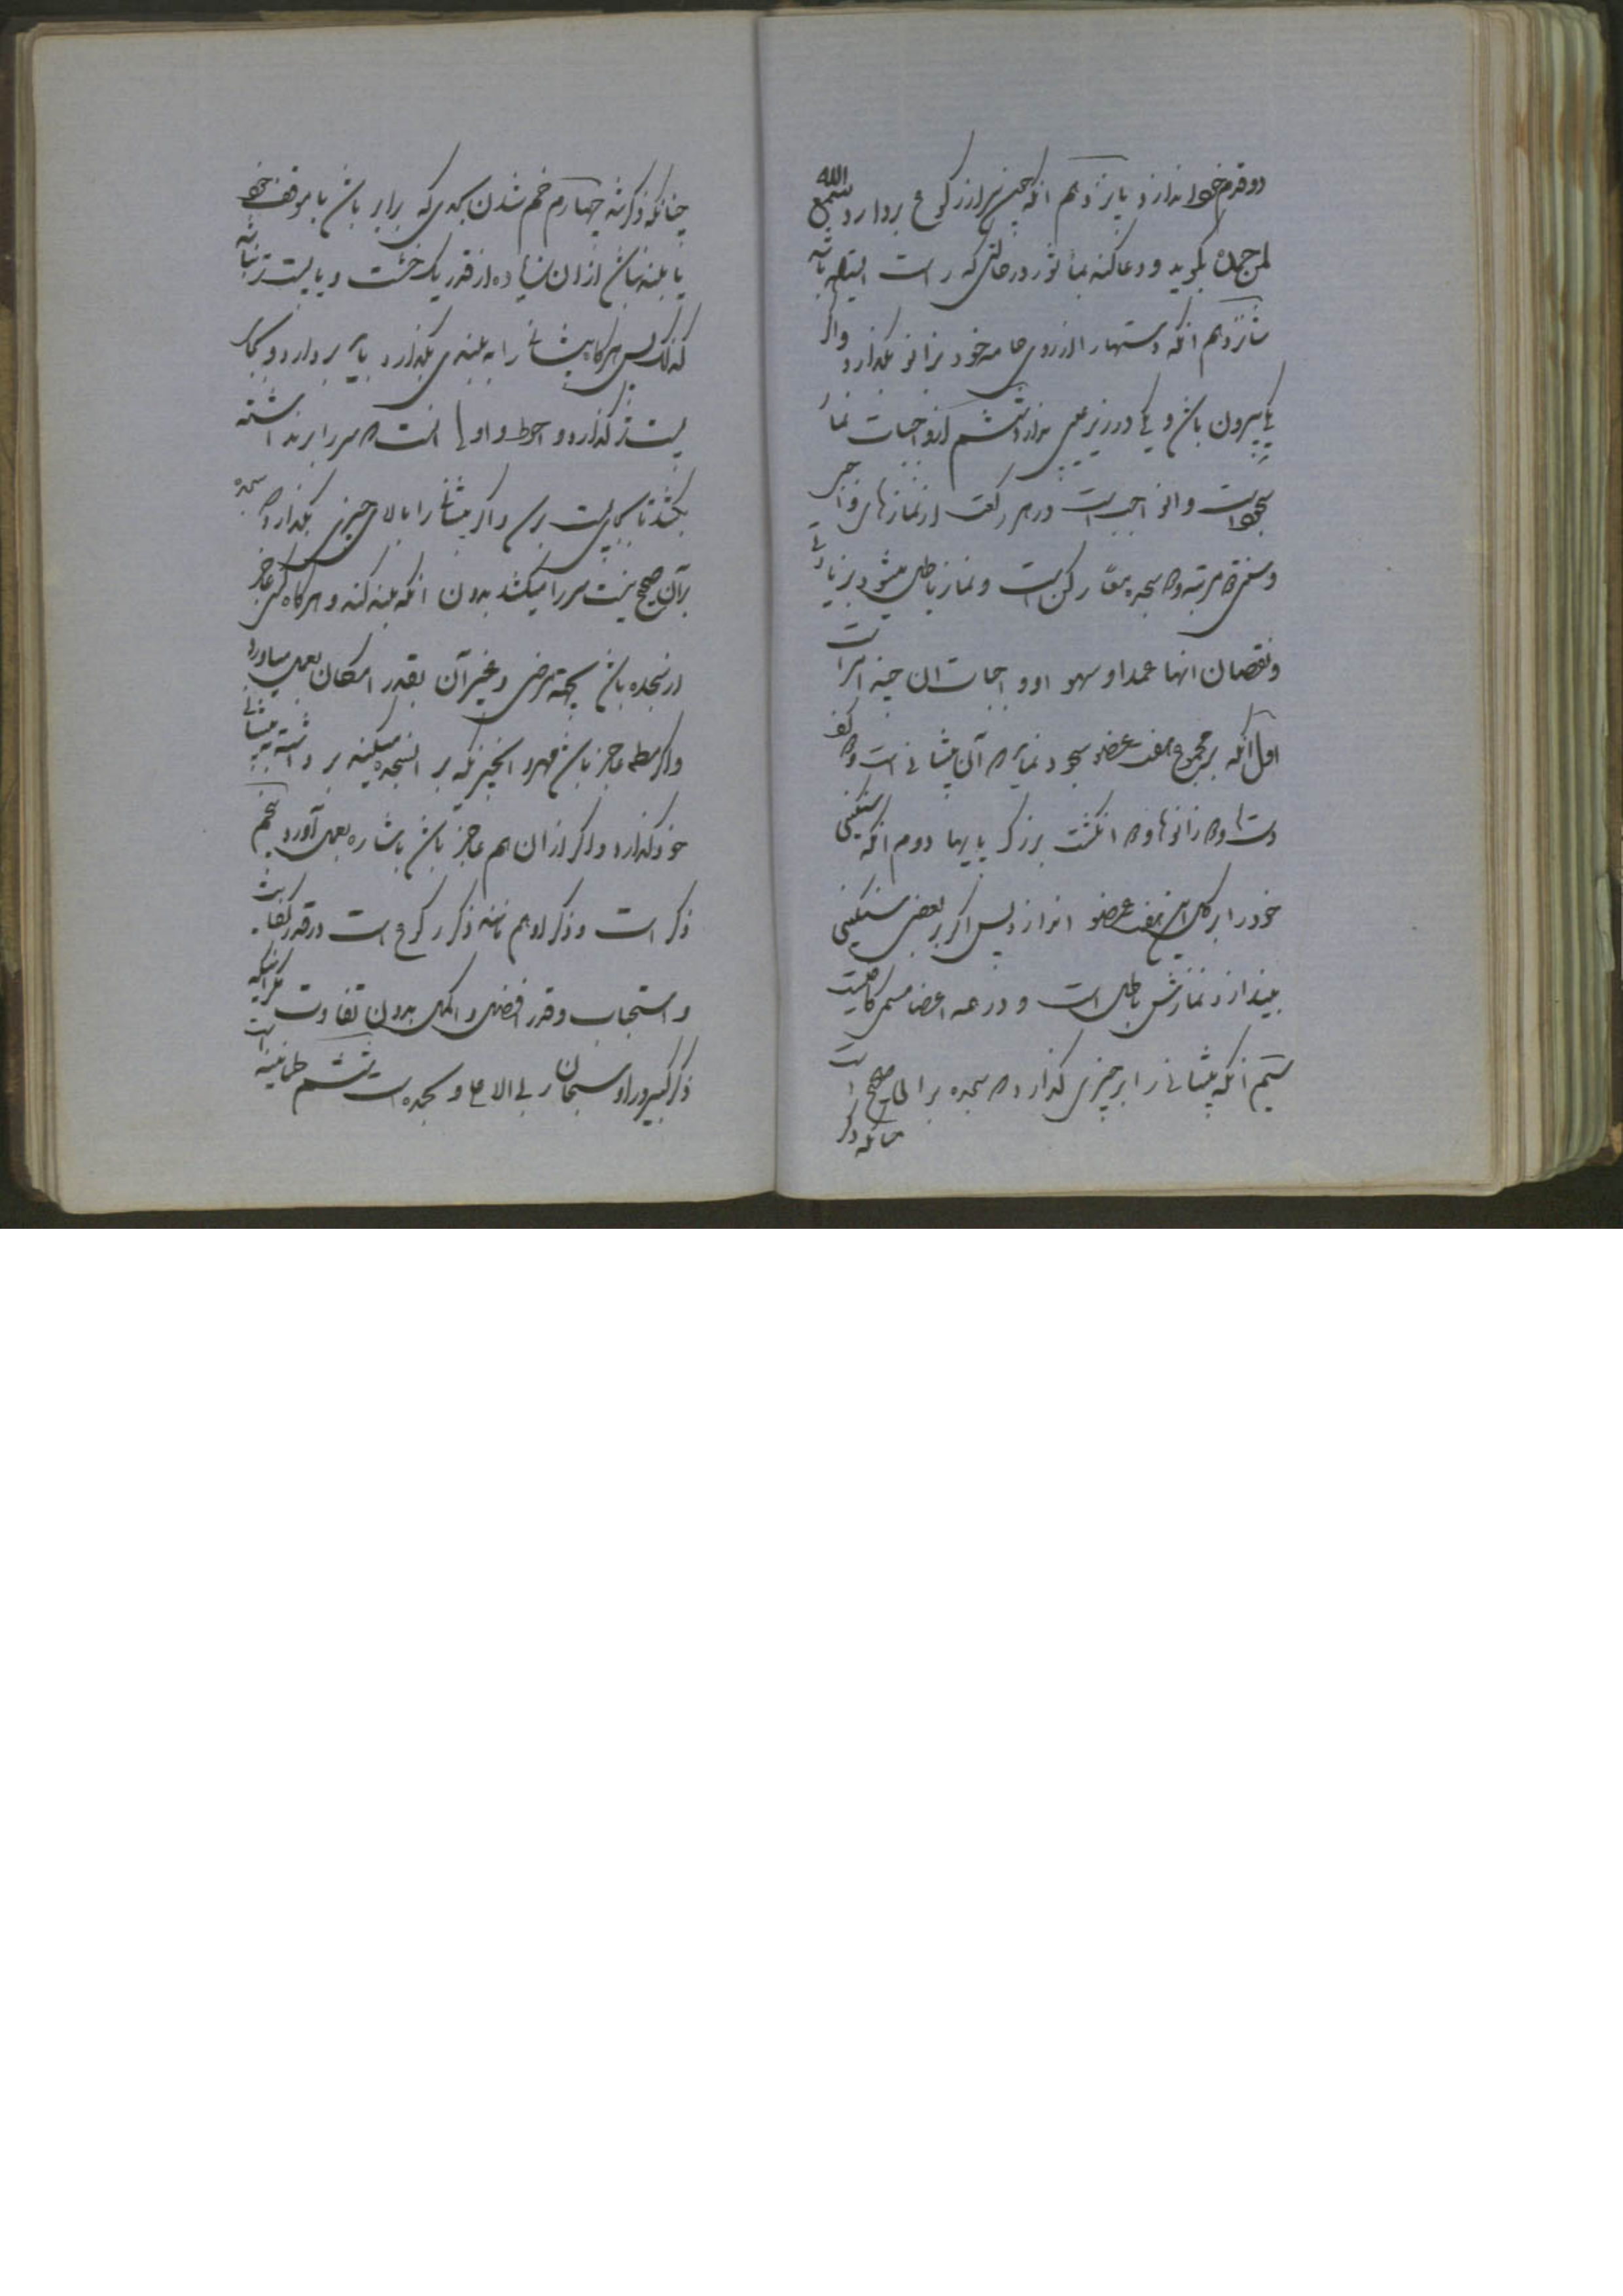 دو قدم خود اندازد پانزدهم انکه چون سر از رکوع بردارد سمع الله
لمن حمده بکوید و دعا کند بماثور در حالتی که راست ایستاده باشد
شانزدهم انکه دستها را از روی جامه خود بزانو بکذارد واکر
یکی بیرون باشد و یکی در زیر عیبی ندارد ششم از واجبات نماز
سجود است و ان واجب است در هر رکعت از نمازهای واجبی
و سنتی دو مرتبه و دو سجده معا رکن است و نماز باطل میشود بزیادتی
و نقصان انها عمدا و سهوا و واجبات ان چند امر است
اول انکه بر مجموع هفت عضو سجود نماید که آن پیشانی است و دو کف
دستها و دو زانوها و دو انکشت بزرک پایها دوم انکه سنکینی
خود را بر کل این هفت عضو اندازد پس اکر بر بعضی سنکینی
بیندازد نمازش باطل است و در همه اعضا مسمی کافیست
سیم انکه پیشانی را بر چیزی کذارد که سجده بر آن صحیح است
چنانکه ذکر
چنانکه ذکر شد چهارم خم شدن بحدی که برابر باشد با موقف خود
یا بلند نباشد از ان زیاده از قدر یک خشت و یا پست تر نباشد
کذلک پس هرکاه پیشانی را به بلندی بکذارد باید بردارد و بجای
پست تر کذارد و احوط و اولی انست که سر را برنداشته
بکشد تا بجای پست برسد و اکر پیشانی را بالای چیزی بکذارد که سجده
بر آن صحیح نیست سر را میکشد بدون انکه بلند کند و هرکاه کسی عاجز
از سجده باشد بجهة مرض و غیر آن بقدر امکان بعمل میاورد
و اکر مطلق عاجز باشد مهر و انچیزیکه بر ان سجده میکند برداشته به پیشانی
خود کذارد و اکر از ان هم عاجز باشد باشاره بعمل آورد پنجم
ذکر است و ذکر او هم مانند ذکر رکوع است در قدر کفایت
و استحباب و قدر افضل و اکمل بدون تفاوت مکر اینکه
ذکر کبیر در او سبحان ربی الاعلی و بحمده است ششم طمانینه است